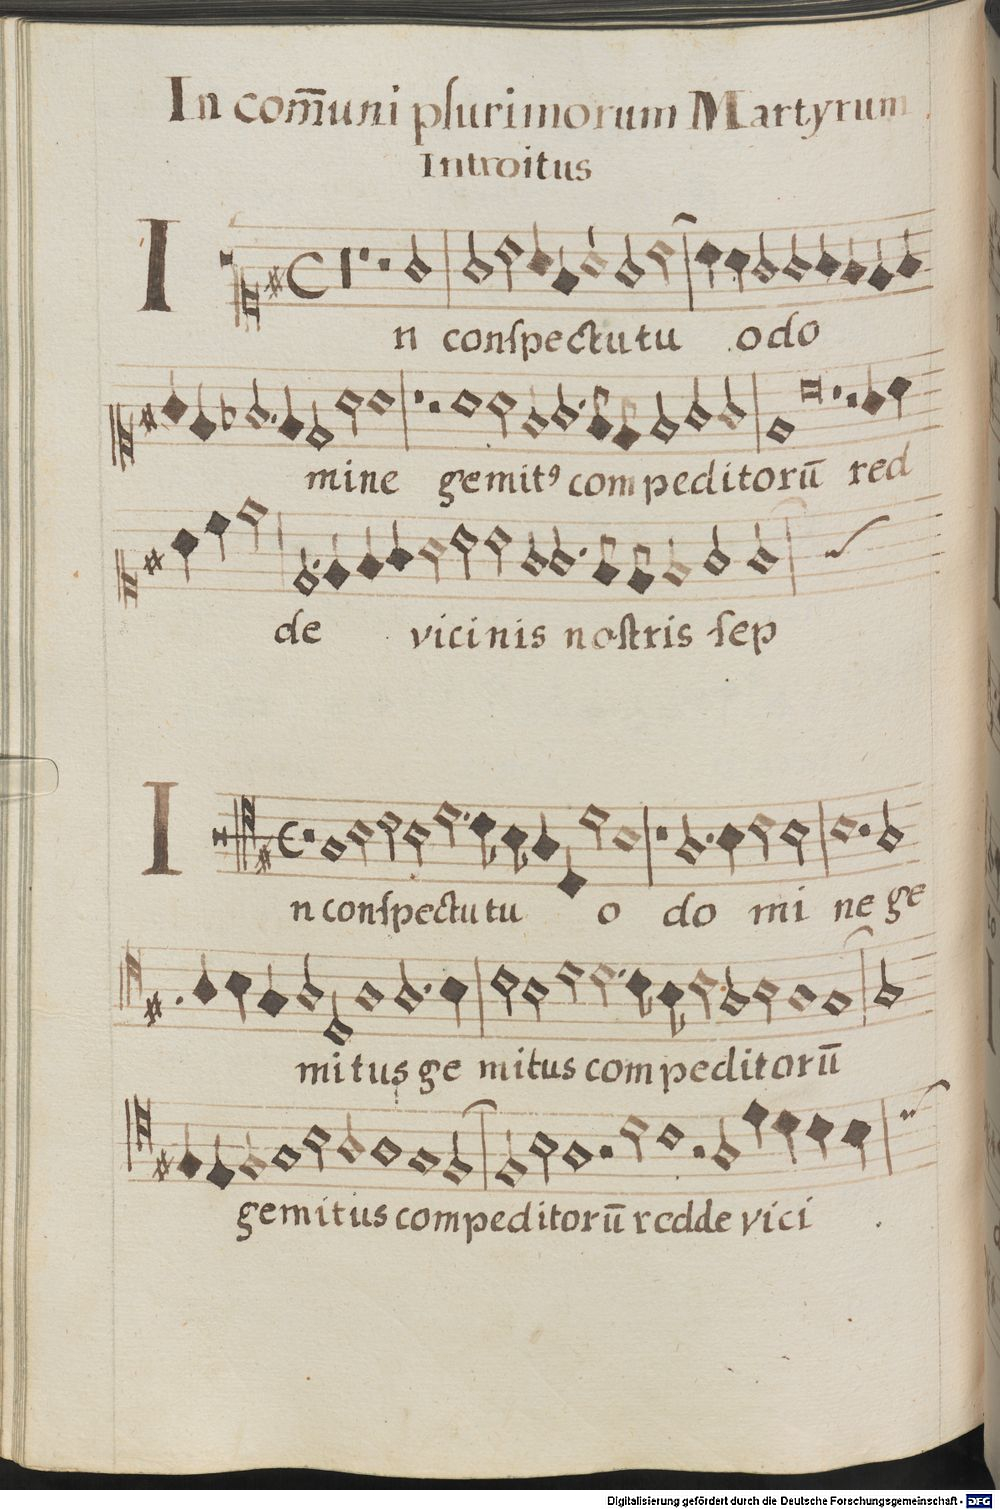 In com̄uni plurimorum Martyrum
Introitus
I
n conſpectu tu o do
mine gemitꝰ compeditorū red
de vicinis noſtris ſep
I
n conſpectu tu o do mi ne ge
mitus ge mitus compeditorū
gemitus compeditorū redde vici
Digitalisierung gefördert durch die Deutsche Forschungsgemeinschaft - DFG